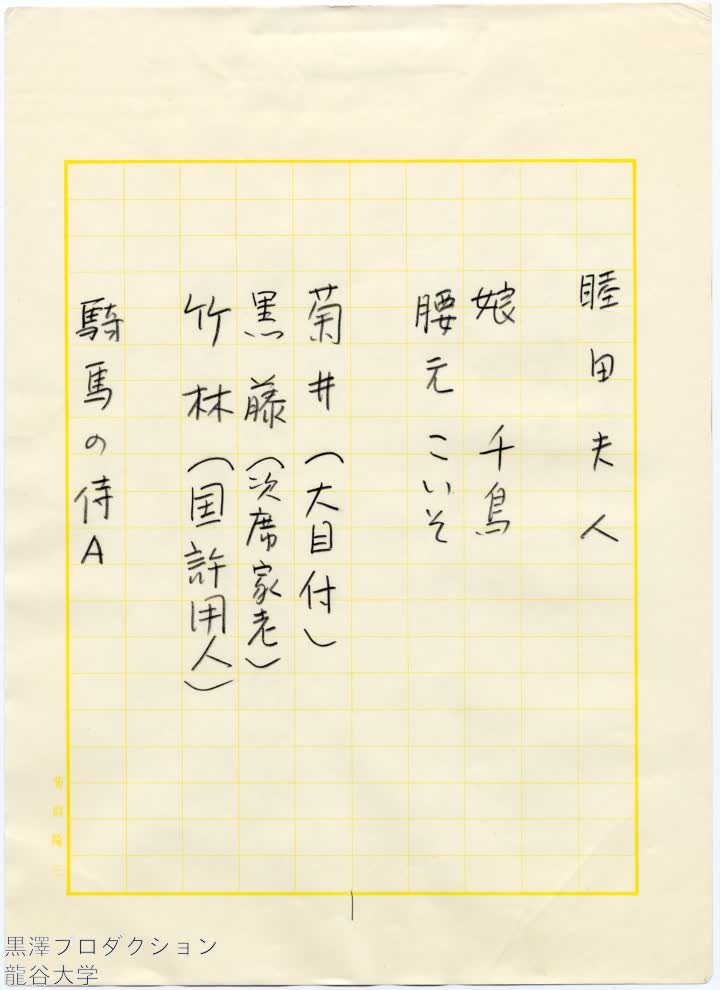 睦田夫人
娘 千鳥
腰元 こいそ
菊井(大目付)
黒藤(次席家老)
竹林(国許用人)
騎馬の侍A
黒澤プロダクション
龍谷大学